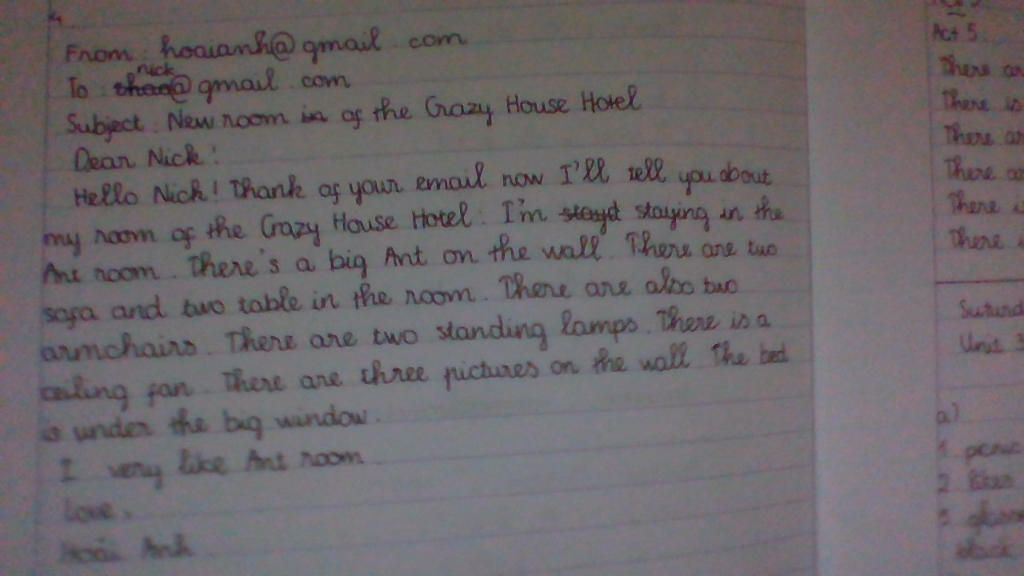 From: hoaianh@gmail.com
To: nick@gmail.com
Subject: New room of the Crazy House Hotel
Dear Nick!
Hello Nick! Thank of your email now I'll tell you about
my room of the Crazy House Hotel. I'm staying in the
Ant room. There's a big Ant on the wall. There are two
sofa and two table in the room. There are also two
armchairs. There are two standing lamps. There is a
ceiling fan. There are three pictures on the wall. The bed
is under the big window.
I very like Ant room.
Love,
Hoai Anh
Act 5:
There ar
There is
There ar
There ar
There i
There i
Unit 3
a)
1 picnic
2 likes
3 glasses
black